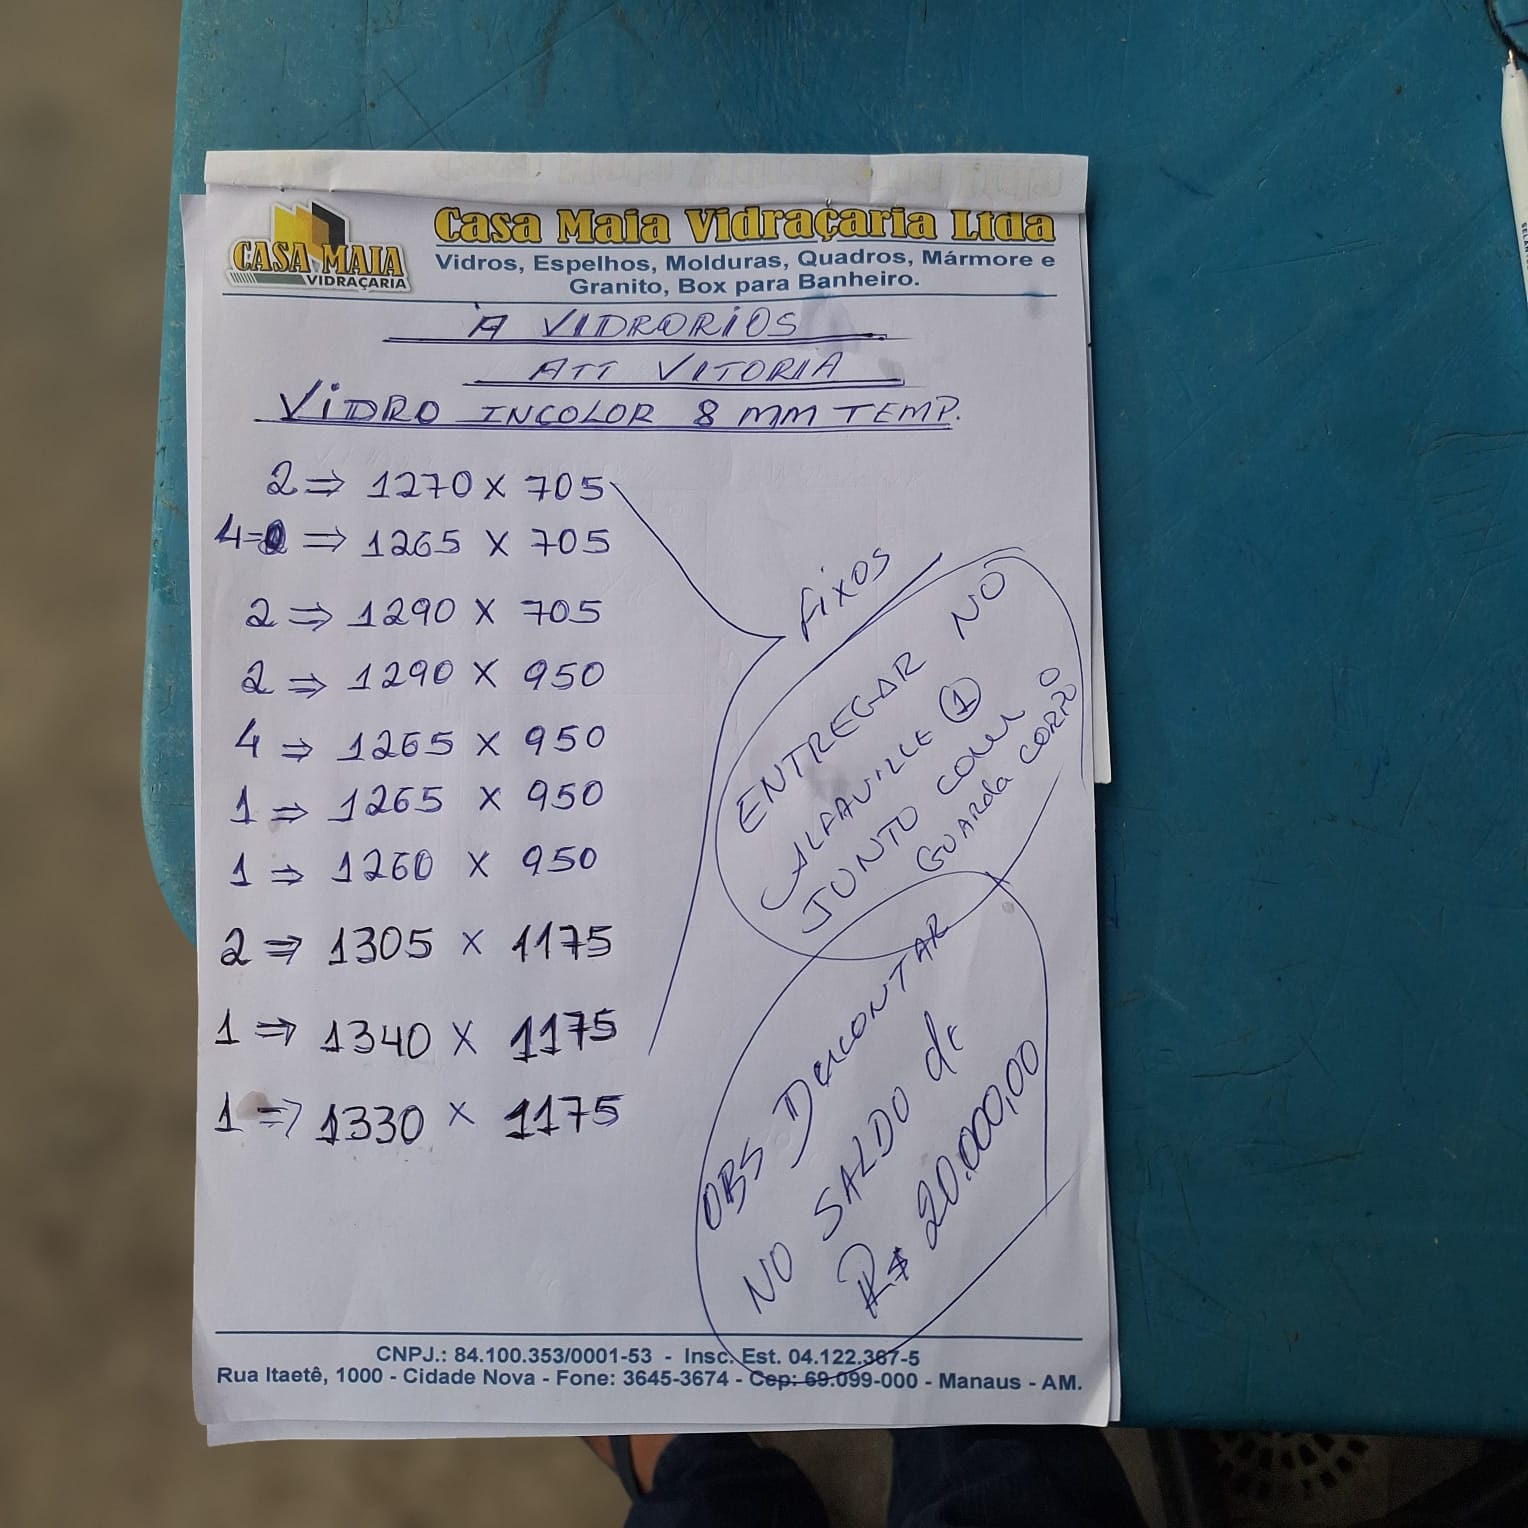 CASA MAIA
VIDRAÇARIA
Casa Maia Vidraçaria Ltda
Vidros, Espelhos, Molduras, Quadros, Mármore e
Granito, Box para Banheiro.
À VIDRORIOS
ATT VITORIA
VIDRO INCOLOR 8 MM TEMP.
2 ⇒ 1270 X 705
4= ⇒ 1265 X 705
2 ⇒ 1290 X 705
2 ⇒ 1290 X 950
4 ⇒ 1265 X 950
1 ⇒ 1265 X 950
1 ⇒ 1260 X 950
2 ⇒ 1305 X 1175
1 ⇒ 1340 X 1175
1 ⇒ 1330 X 1175
fixos
ENTREGAR NO
ALFAVILLE 1
JUNTO COM O
GUARDA CORPO
OBS Descontar
NO SALDO de
R$ 20.000,00
CNPJ.: 84.100.353/0001-53 - Insc. Est. 04.122.367-5
Rua Itaetê, 1000 - Cidade Nova - Fone: 3645-3674 - Cep: 69.099-000 - Manaus - AM.